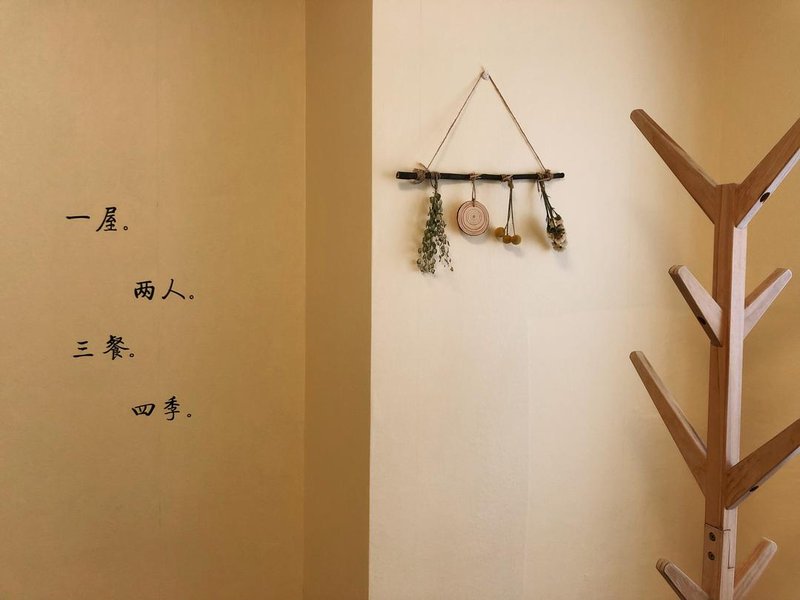 一屋。
两人。
三餐。
四季。